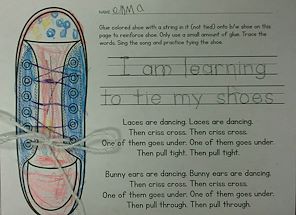 NAME emma
Glue colored shoe with a string in it (not tied) onto b/w shoe on this
page to reinforce shoe. Only use a small amount of glue. Trace the
words. Sing the song and practice tying the shoe.
I am learning
to tie my shoes
Laces are dancing. Laces are dancing.
Then criss cross. Then criss cross.
One of them goes under. One of them goes under.
Then pull tight. Then pull tight.
Bunny ears are dancing. Bunny ears are dancing.
Then criss cross. Then criss cross.
One of them goes under. One of them goes under.
Then pull through. Then pull through.